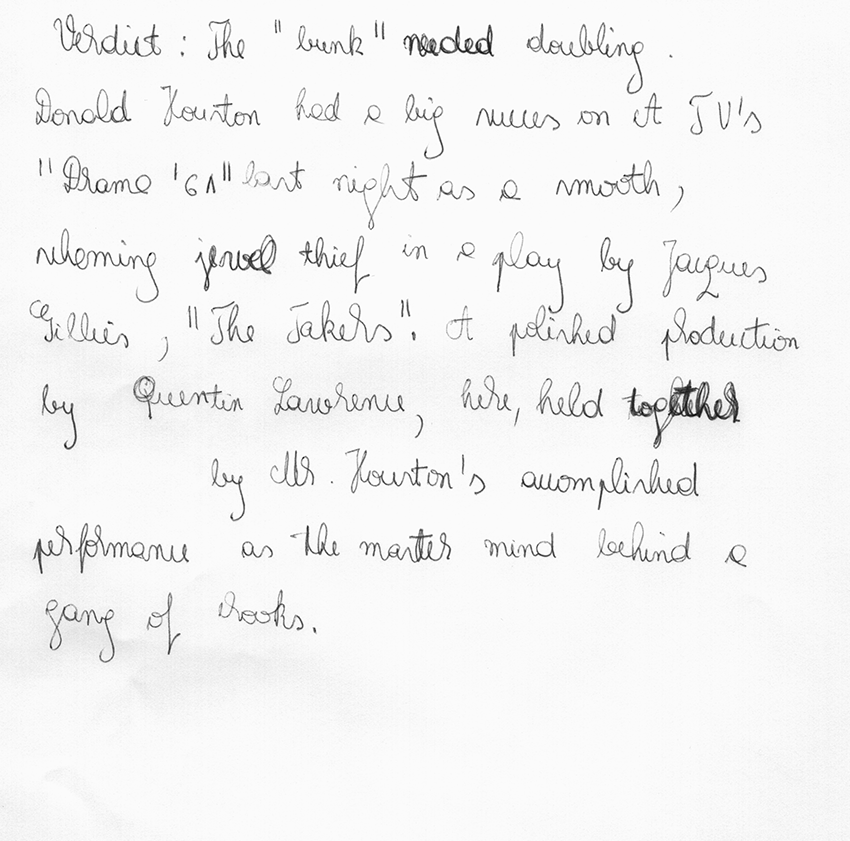 Verdict: The "bunk" needed doubling.
Donald Houston had a big succes on A TV's
"Drama '61" last night as a smooth,
scheming jewel thief in a play by Jacques
Gillies, "The Takers". A polished production
by Quentin Lawrence, here, held together
by Mr. Houston's accomplished
performance as the master mind behind a
gang of crooks.